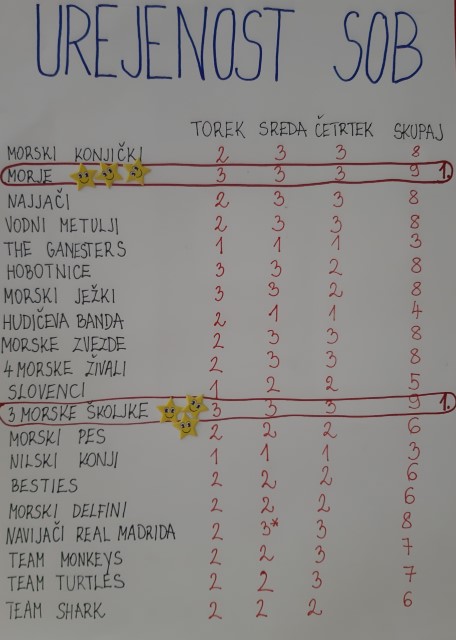 UREJENOST SOB
TOREK SREDA ČETRTEK SKUPAJ
MORSKI KONJIČKI 2 3 3 8
MORJE 3 3 3 9 1.
NAJJAČI 2 3 3 8
VODNI METULJI 2 3 3 8
THE GANESTERS 1 1 1 3
HOBOTNICE 3 3 2 8
MORSKI JEŽKI 3 3 2 8
HUDIČEVA BANDA 2 1 1 4
MORSKE ZVEZDE 2 3 3 8
4 MORSKE ŽIVALI 2 3 3 8
SLOVENCI 1 2 2 5
3 MORSKE ŠKOLJKE 3 3 3 9 1.
MORSKI PES 2 2 2 6
NILSKI KONJI 1 1 1 3
BESTIES 2 2 2 6
MORSKI DELFINI 2 2 2 6
NAVIJAČI REAL MADRIDA 2 3* 3 8
TEAM MONKEYS 2 2 3 7
TEAM TURTLES 2 2 3 7
TEAM SHARK 2 2 2 6